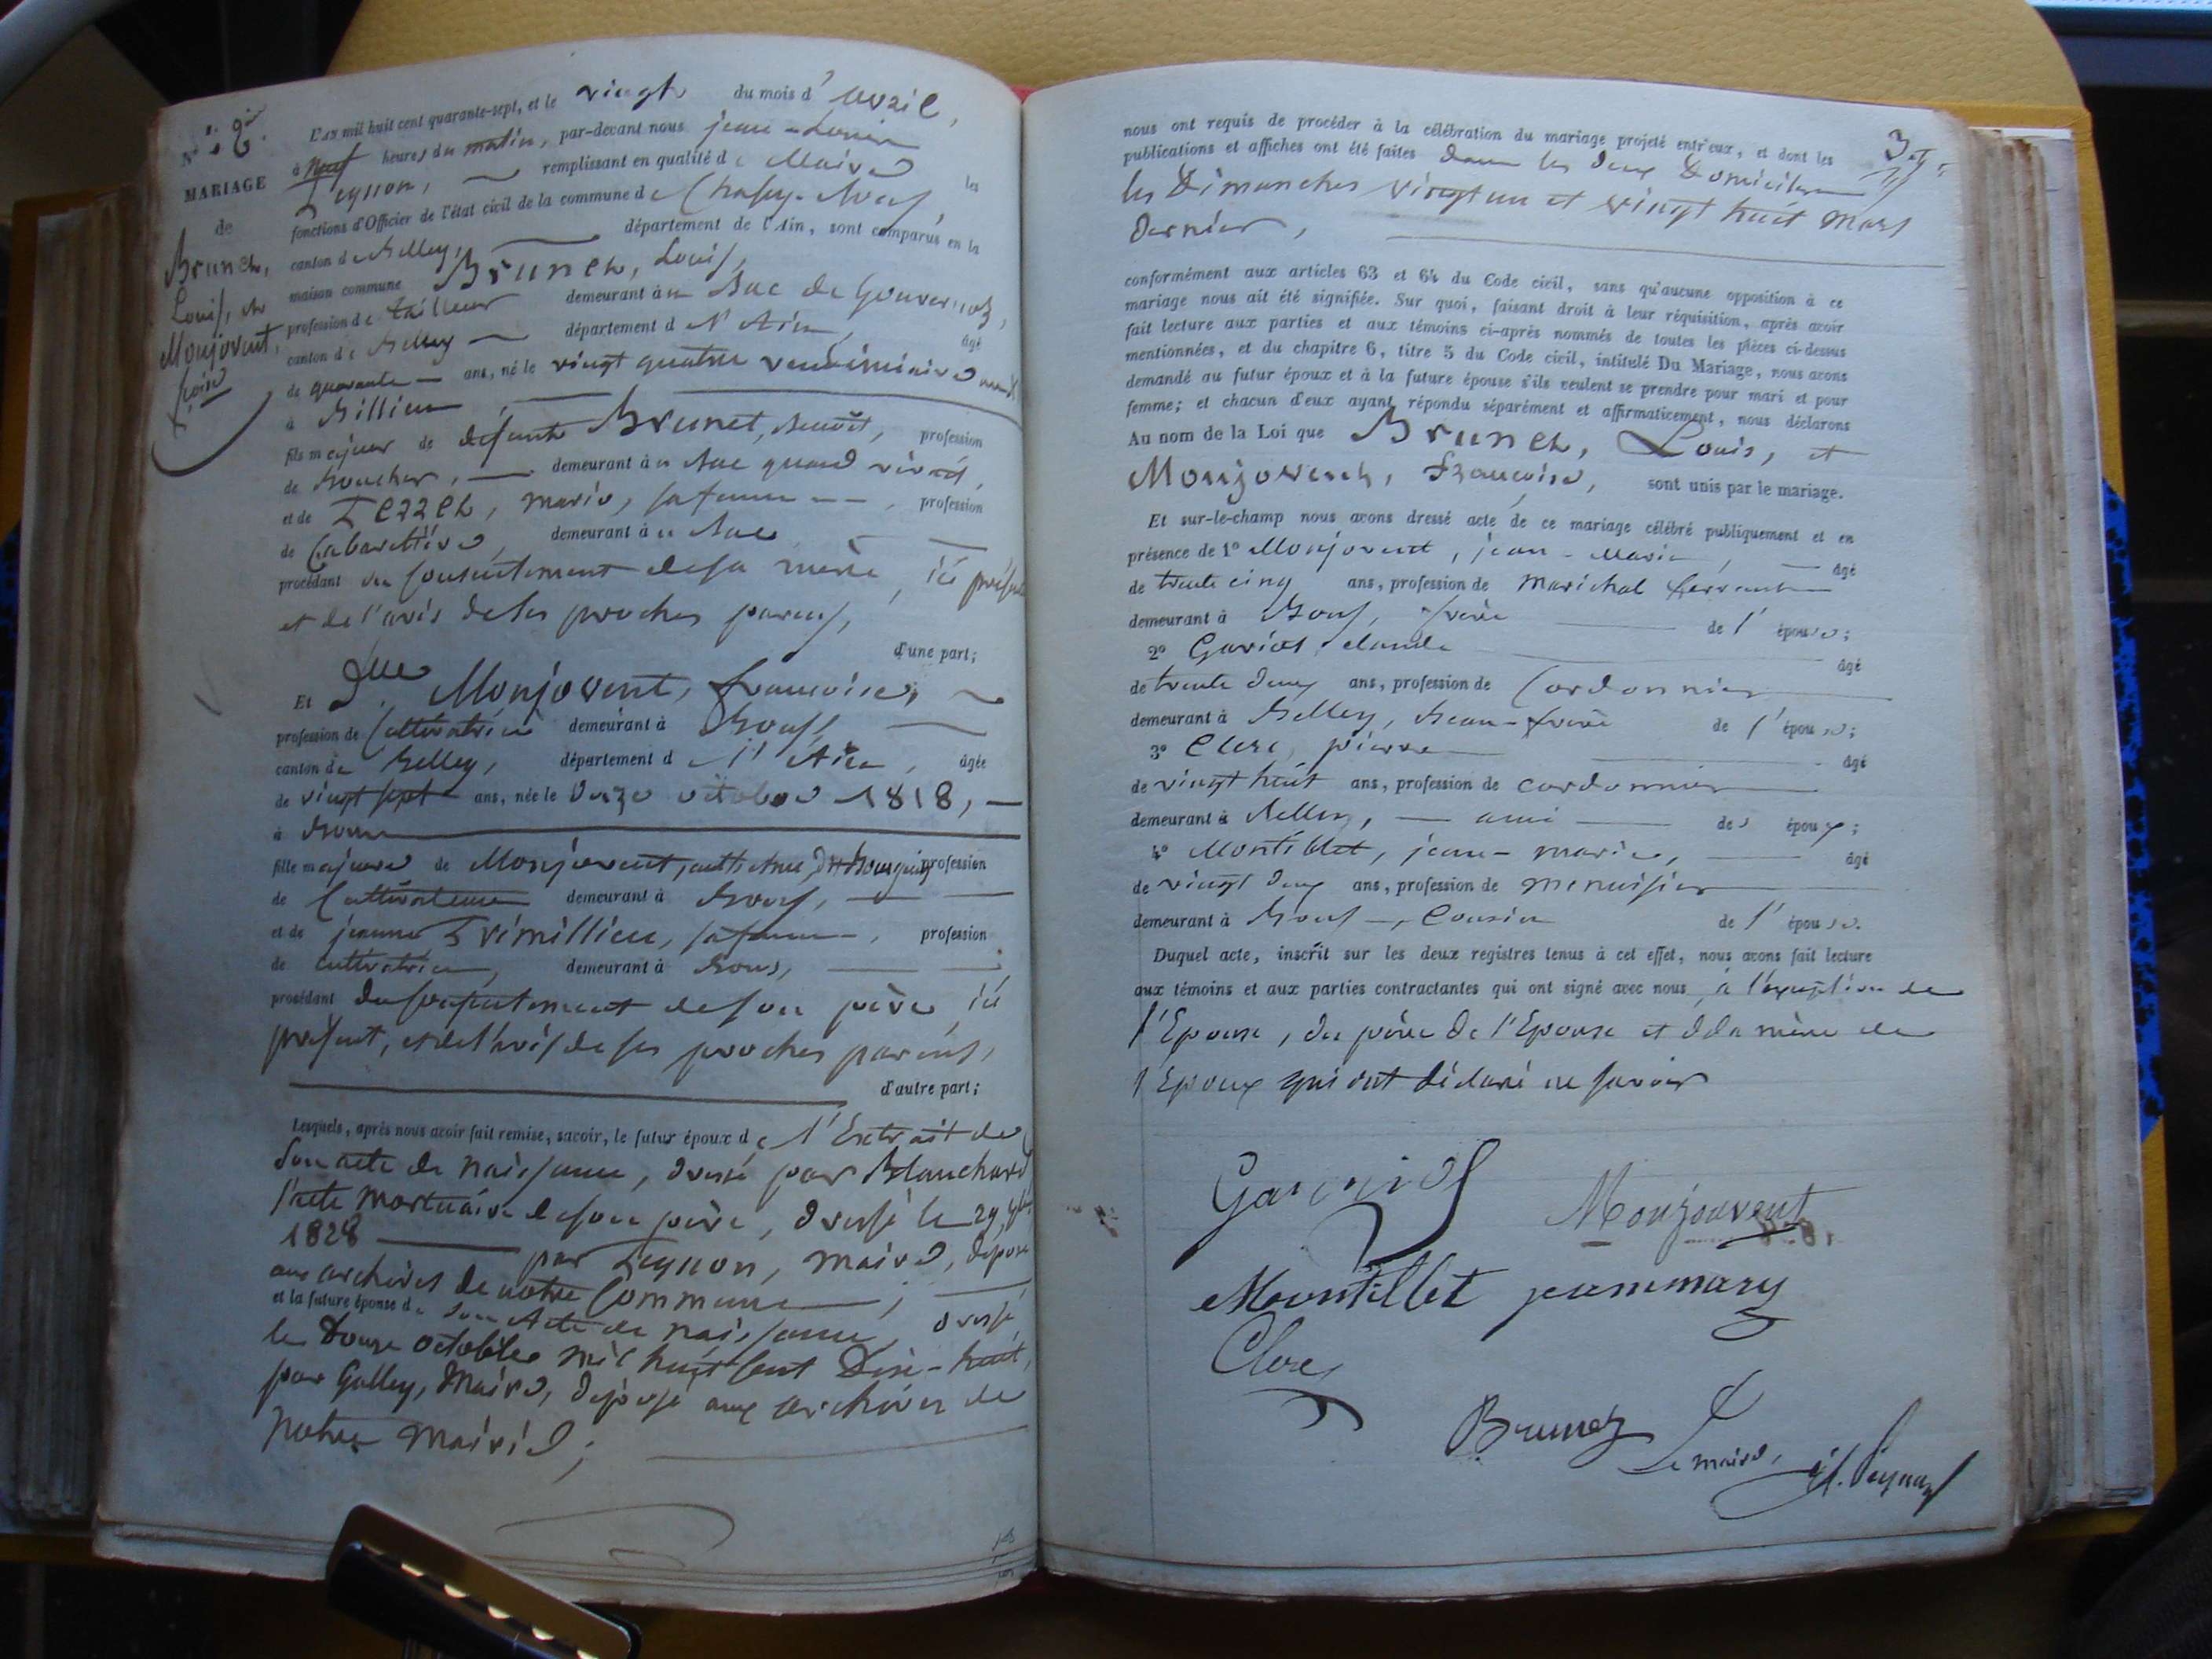 N° 2.
MARIAGE
de
Brunet,
Louis, et
Monjovent,
L'an mil huit cent quarante-sept, et le vingt du mois d'avril,
à neuf heures du matin, par-devant nous jean-Louis
Peysson, remplissant en qualité de Maire les
fonctions d'Officier de l'état civil de la commune de Chazey-
canton de Belley, département de l'Ain, sont comparus en la
maison commune Brunet, Louis,
profession de tailleur demeurant à
canton de Belley département de l'Ain, âgé
de quarante ans, né le vingt quatre vendémiaire
à Billieu
fils majeur de defunt Brunet, Benoît, profession
de Boucher, demeurant à quand vivait,
et de marie, sa femme profession
de Cabaretière, demeurant à
procédant du consentement de sa mère, ici présente
et de l'avis de ses proches parens,
d'une part;
Et Dlle Monjovent, francoise,
profession de Cultivatrice demeurant à Bons,
canton de Belley, département de l'Ain, âgée
de vingt sept ans, née le onze octobre 1818,
à Bons
fille majeure de Monjovent, anthelme, dit profession
de Cultivateur demeurant à Bons,
et de jeanne Trimillieu, sa femme, profession
de cultivatrice, demeurant à Bons,
procédant du consentement de son père, ici
présent, et de l'avis de ses proches parens,
d'autre part;
Lesquels, après nous avoir fait remise, savoir, le futur époux de l'Extrait de
son acte de naissance, dressé par Blanchard
l'acte mortuaire de son père, dressé le 29,
1828 par Peysson, maire, déposé
aux archives de notre Commune;
et la future épouse de son Acte de naissance, dressé
le Douze octobre mil huit Cent Dix-huit,
par Galley, Maire, déposé aux archives de
notre mairie;
nous ont requis de procéder à la célébration du mariage projeté entr'eux, et dont les
publications et affiches ont été faites dans les deux Domiciles
les Dimanches vingt un et vingt huit mars
dernier,
conformément aux articles 63 et 64 du Code civil, sans qu'aucune opposition à ce
mariage nous ait été signifiée. Sur quoi, faisant droit à leur réquisition, après avoir
fait lecture aux parties et aux témoins ci-après nommés de toutes les pièces ci-dessus
mentionnées, et du chapitre 6, titre 5 du Code civil, intitulé Du Mariage, nous avons
demandé au futur époux et à la future épouse s'ils veulent se prendre pour mari et pour
femme; et chacun d'eux ayant répondu séparément et affirmativement, nous déclarons
Au nom de la Loi que Brunet, Louis, et
Monjovent, francoise, sont unis par le mariage.
Et sur-le-champ nous avons dressé acte de ce mariage célébré publiquement et en
présence de 1° Monjovent, jean-Marie, âgé
de trente cinq ans, profession de Marechal ferrant
demeurant à Bons, frère de l'épouse;
2° claude âgé
de trente deux ans, profession de Cordonnier
demeurant à Belley, Beau-frère de l'épouse;
3° Clerc, pierre âgé
de vingt huit ans, profession de cordonnier
demeurant à Belley, ami des époux;
4° Montillet, jean-marie, âgé
de vingt deux ans, profession de menuisier
demeurant à Bons, Cousin de l'épouse.
Duquel acte, inscrit sur les deux registres tenus à cet effet, nous avons fait lecture
aux témoins et aux parties contractantes qui ont signé avec nous, à l'exception de
l'Epouse, du père de l'Epouse et de la mère de
l'Epoux qui ont déclaré ne savoir
Monjouvent
Montillet jeanmary
Clerc
Brunet
Le maire,